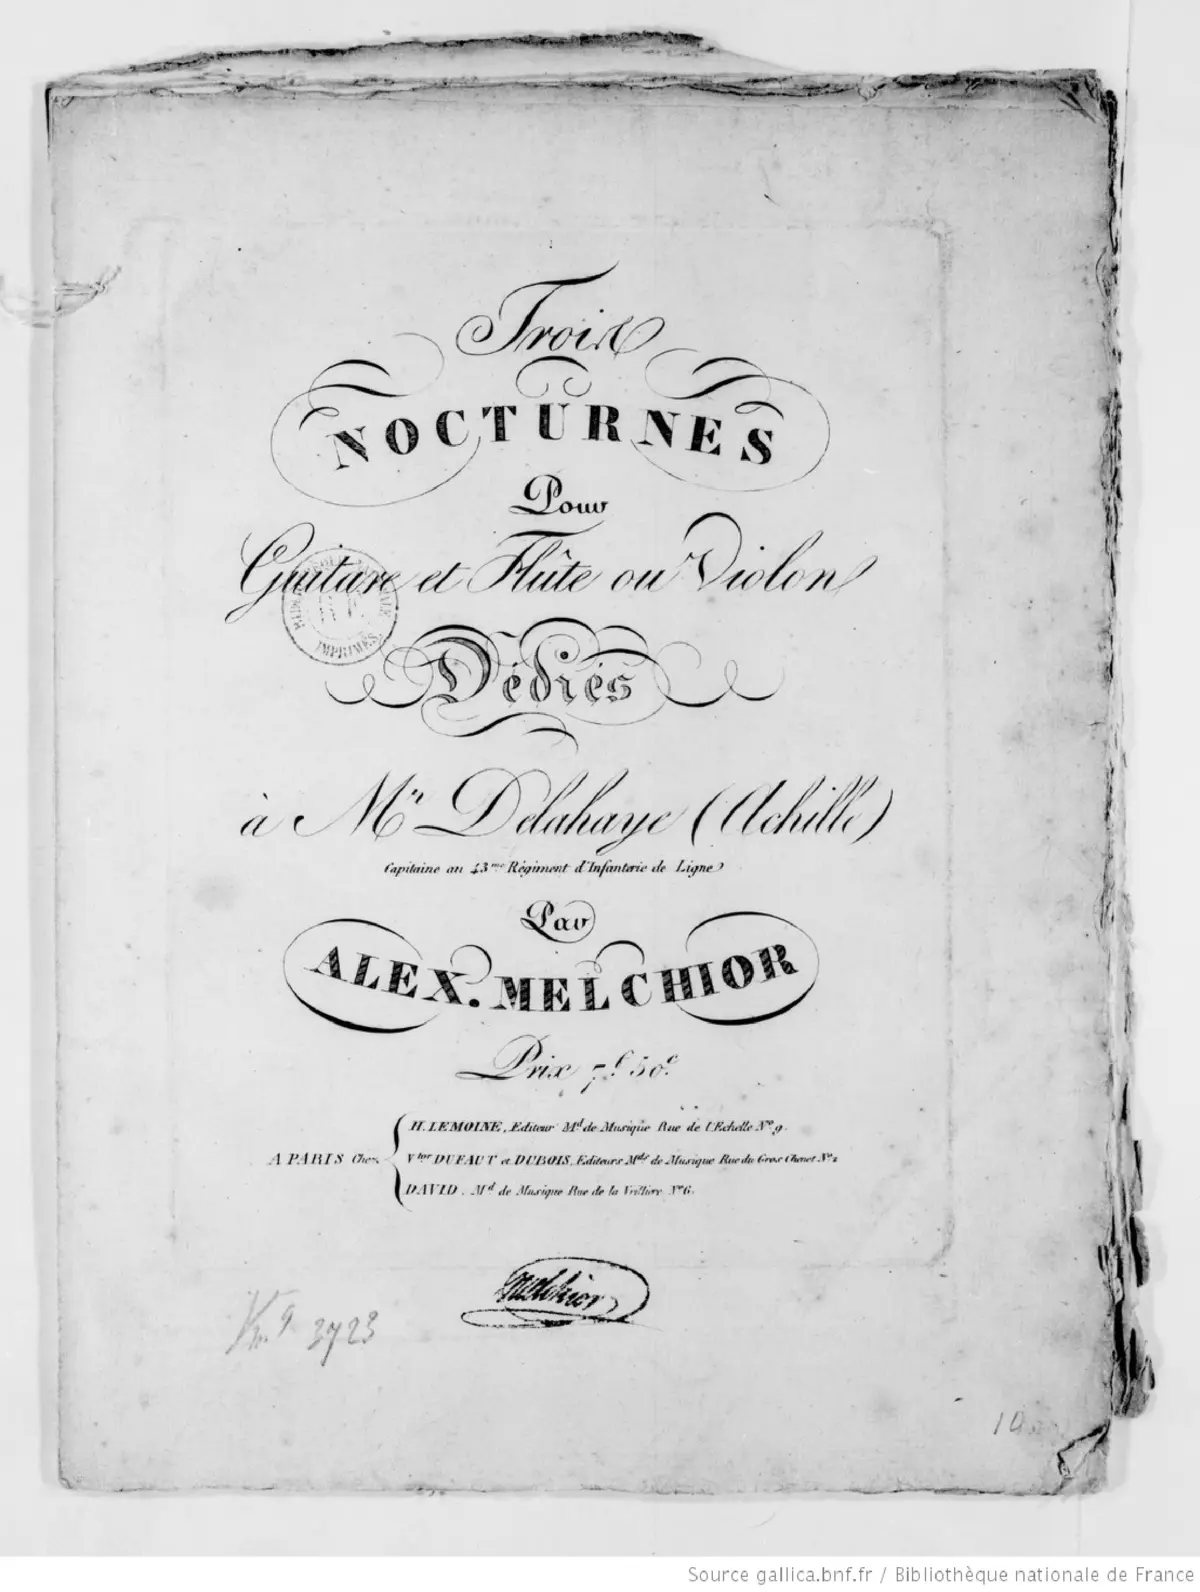 Trois
NOCTURNES
Pour
Guitare et Flûte ou Violon
Dédiés
à Mr. Delahaye (Achille)
Capitaine au 43me Régiment d'Infanterie de Ligne
Par
ALEX. MELCHIOR
Prix 7f 50c.
A PARIS Chez
H. LEMOINE, Editeur Md de Musique Rue de l'Echelle No. 9.
Vtor DUFAUT et DUBOIS, Editeurs Mds de Musique Rue du Gros Chenet No. 2
DAVID, Md de Musique Rue de la Vrillière No. 6.
melchior
3723
IMPRIMÉS
Source gallica.bnf.fr / Bibliothèque nationale de France